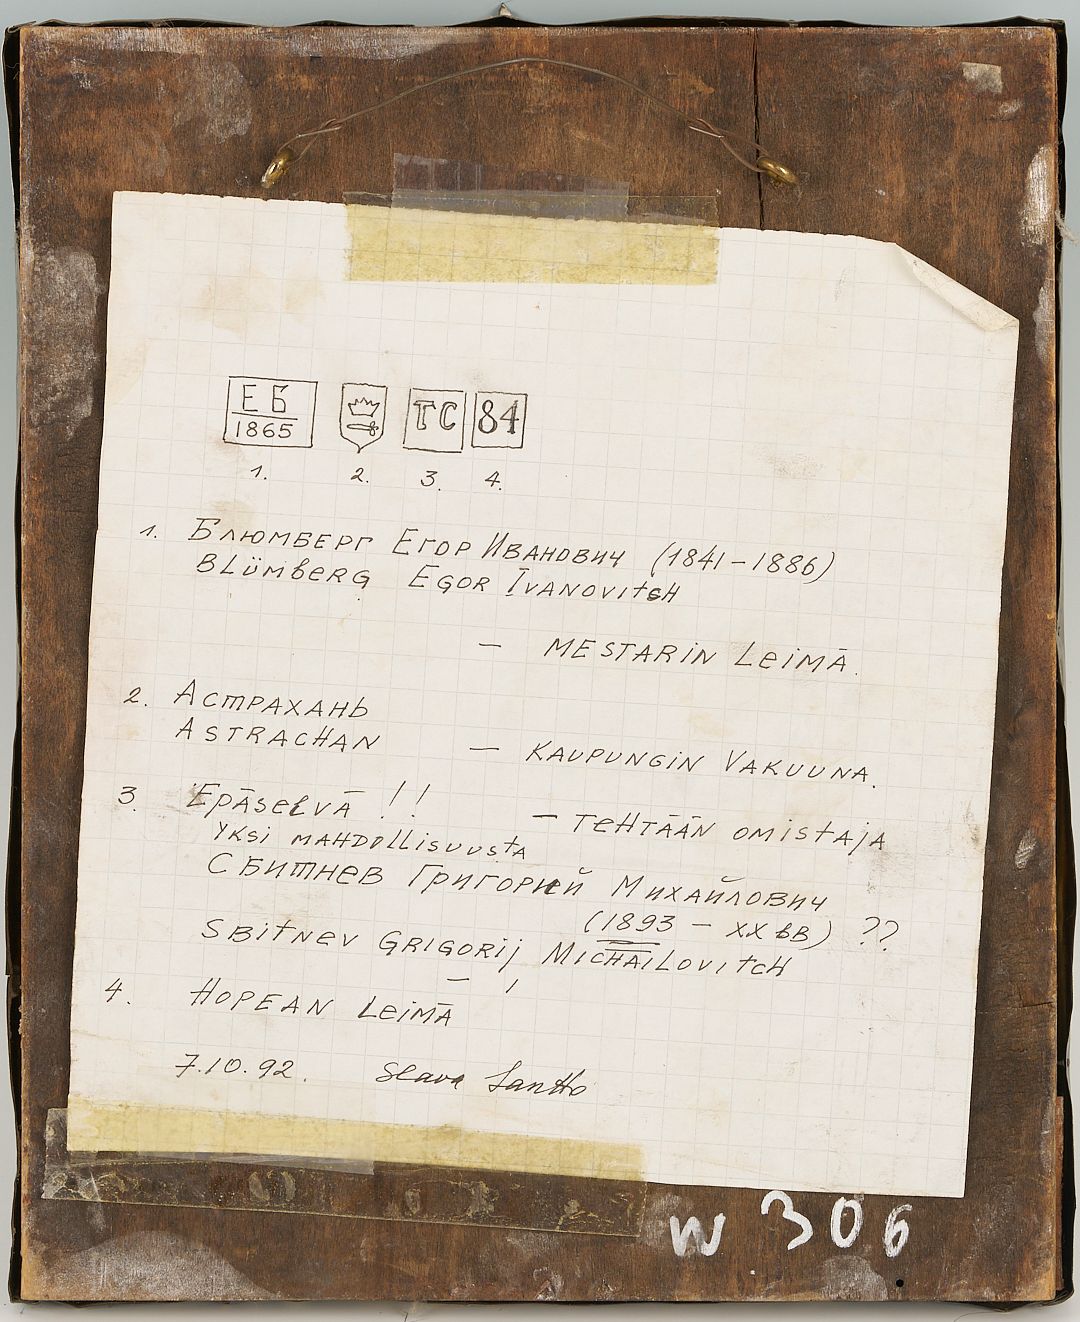 ЕБ ТС 84
1865
1. 2. 3. 4.
1. Блюмберг Егор Иванович (1841-1886)
Blümberg Egor Ivanovitsh
— Mestarin Leimä.
2. Астрахань
Astrachan — Kaupungin Vakuuna.
3. Epäselvä !! — Tehtään omistaja
Yksi mahdollisuusta
Сбитнев Григорий Михайлович
(1893 - XX вв) ??
Sbitnev Grigorij Michailovitch
4. Hopean Leimä
7.10.92. Slava
W 306